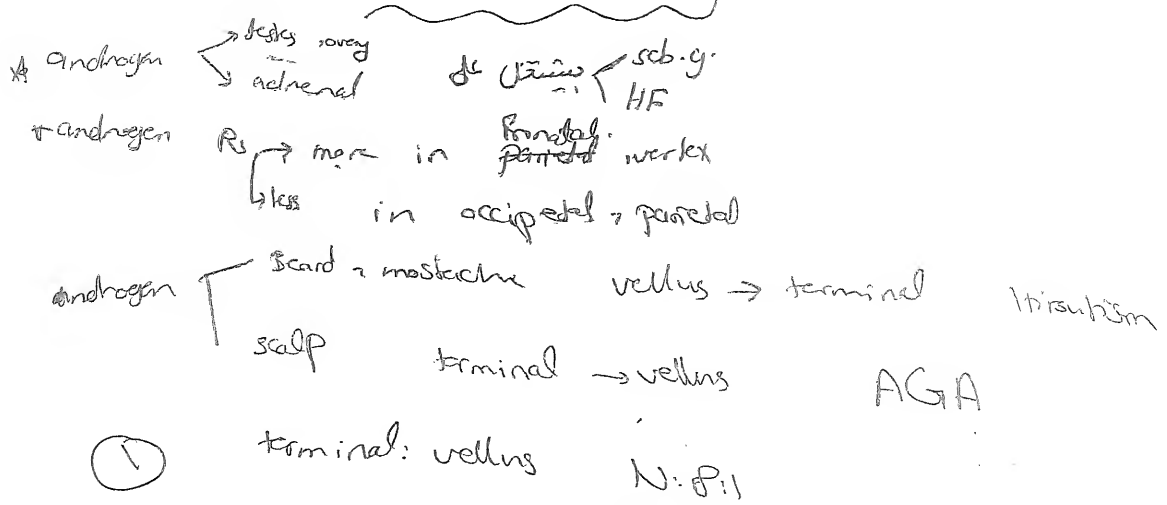 * androgen → testes , ovary بيشتغل على seb.g.
→ adrenal HF
* androgen Rs → more in Frontal . vertex
↳ less in occipetal , parietal
androgen beard , mostache vellus → terminal Hirsutism
scalp terminal → vellus AGA
terminal : vellus